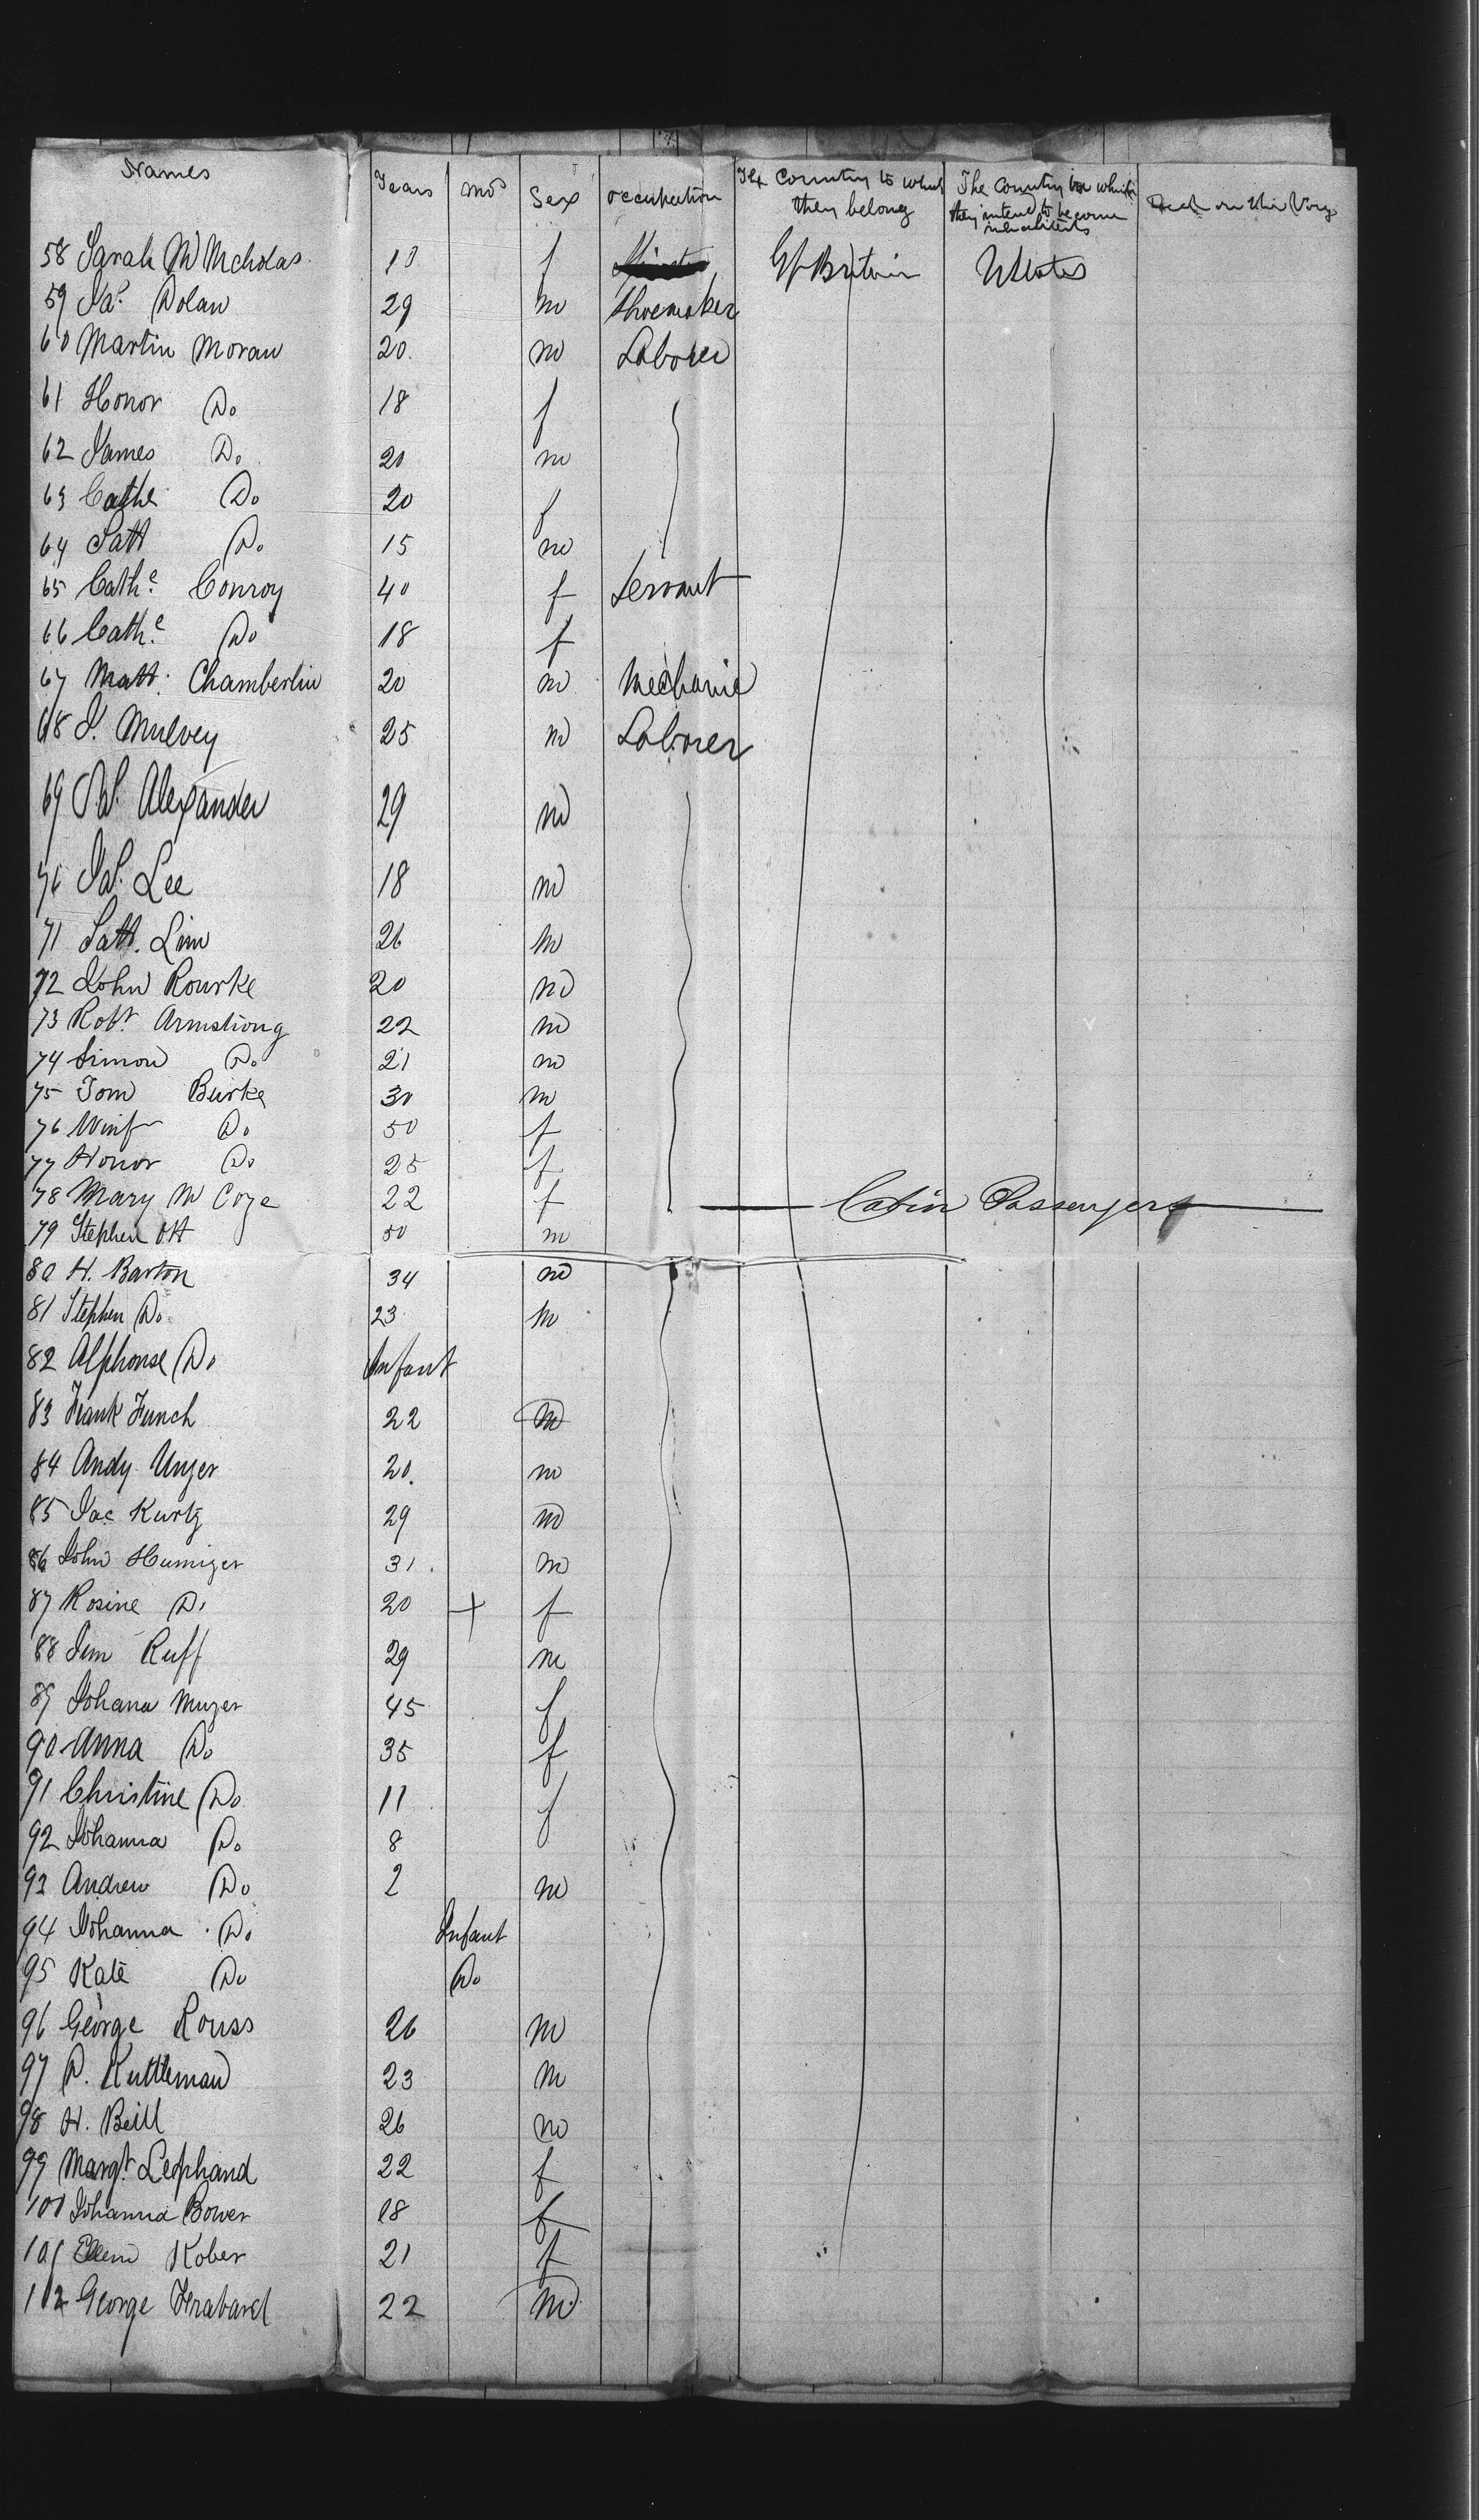 Names Years mos Sex occupation The Country to which they belong The Country in which they intend to become inhabitants Died on the Voy
58 Sarah Mc Nicholas 10 f Gt Britain UStates
59 Jas. Dolan 29 m Shoemaker
60 Martin Moran 20 m Laborer
61 Honor Do 18 f
62 James Do 20 m
63 Cathe Do 20 f
64 Patt Do 15 m
65 Cathe. Conroy 40 f Servant
66 Cathe. Do 18 f
67 Matt. Chamberlin 20 m Mechanic
68 J. Mulvey 25 m Laborer
69 Alexander 29 m
70 Jas. Lee 18 m
71 Patt. Linn 26 m
72 John Rourke 20 m
73 Robt. Armstrong 22 m
74 Simon Do 21 m
75 Tom Burke 30 m
76 Winf Do 50 f
77 Honor Do 25 f
78 Mary Mc Coye 22 f Cabin Passengers
79 Stephen Ott 50 m
80 H. Barton 34 m
81 Stephen Do 23 m
82 Alphonse Do Infant
83 Frank Funch 22 m
84 Andy Unger 20 m
85 Jac Kurtz 29 m
86 John Huminger 31 m
87 Rosine Do 20 + f
88 Jim Ruff 29 m
89 Johana Munger 45 f
90 Anna Do 35 f
91 Christine Do 11 f
92 Johanna Do 8
93 Andrew Do 2 m
94 Johanna Do Infant
95 Kate Do Do
96 George Rouss 26 m
97 D. Kuttleman 23 m
98 H. Beill 26 m
99 Margt. Lephand 22 f
100 Johanna Bower 18 f
101 Ellen Kober 21 f
102 George 22 m